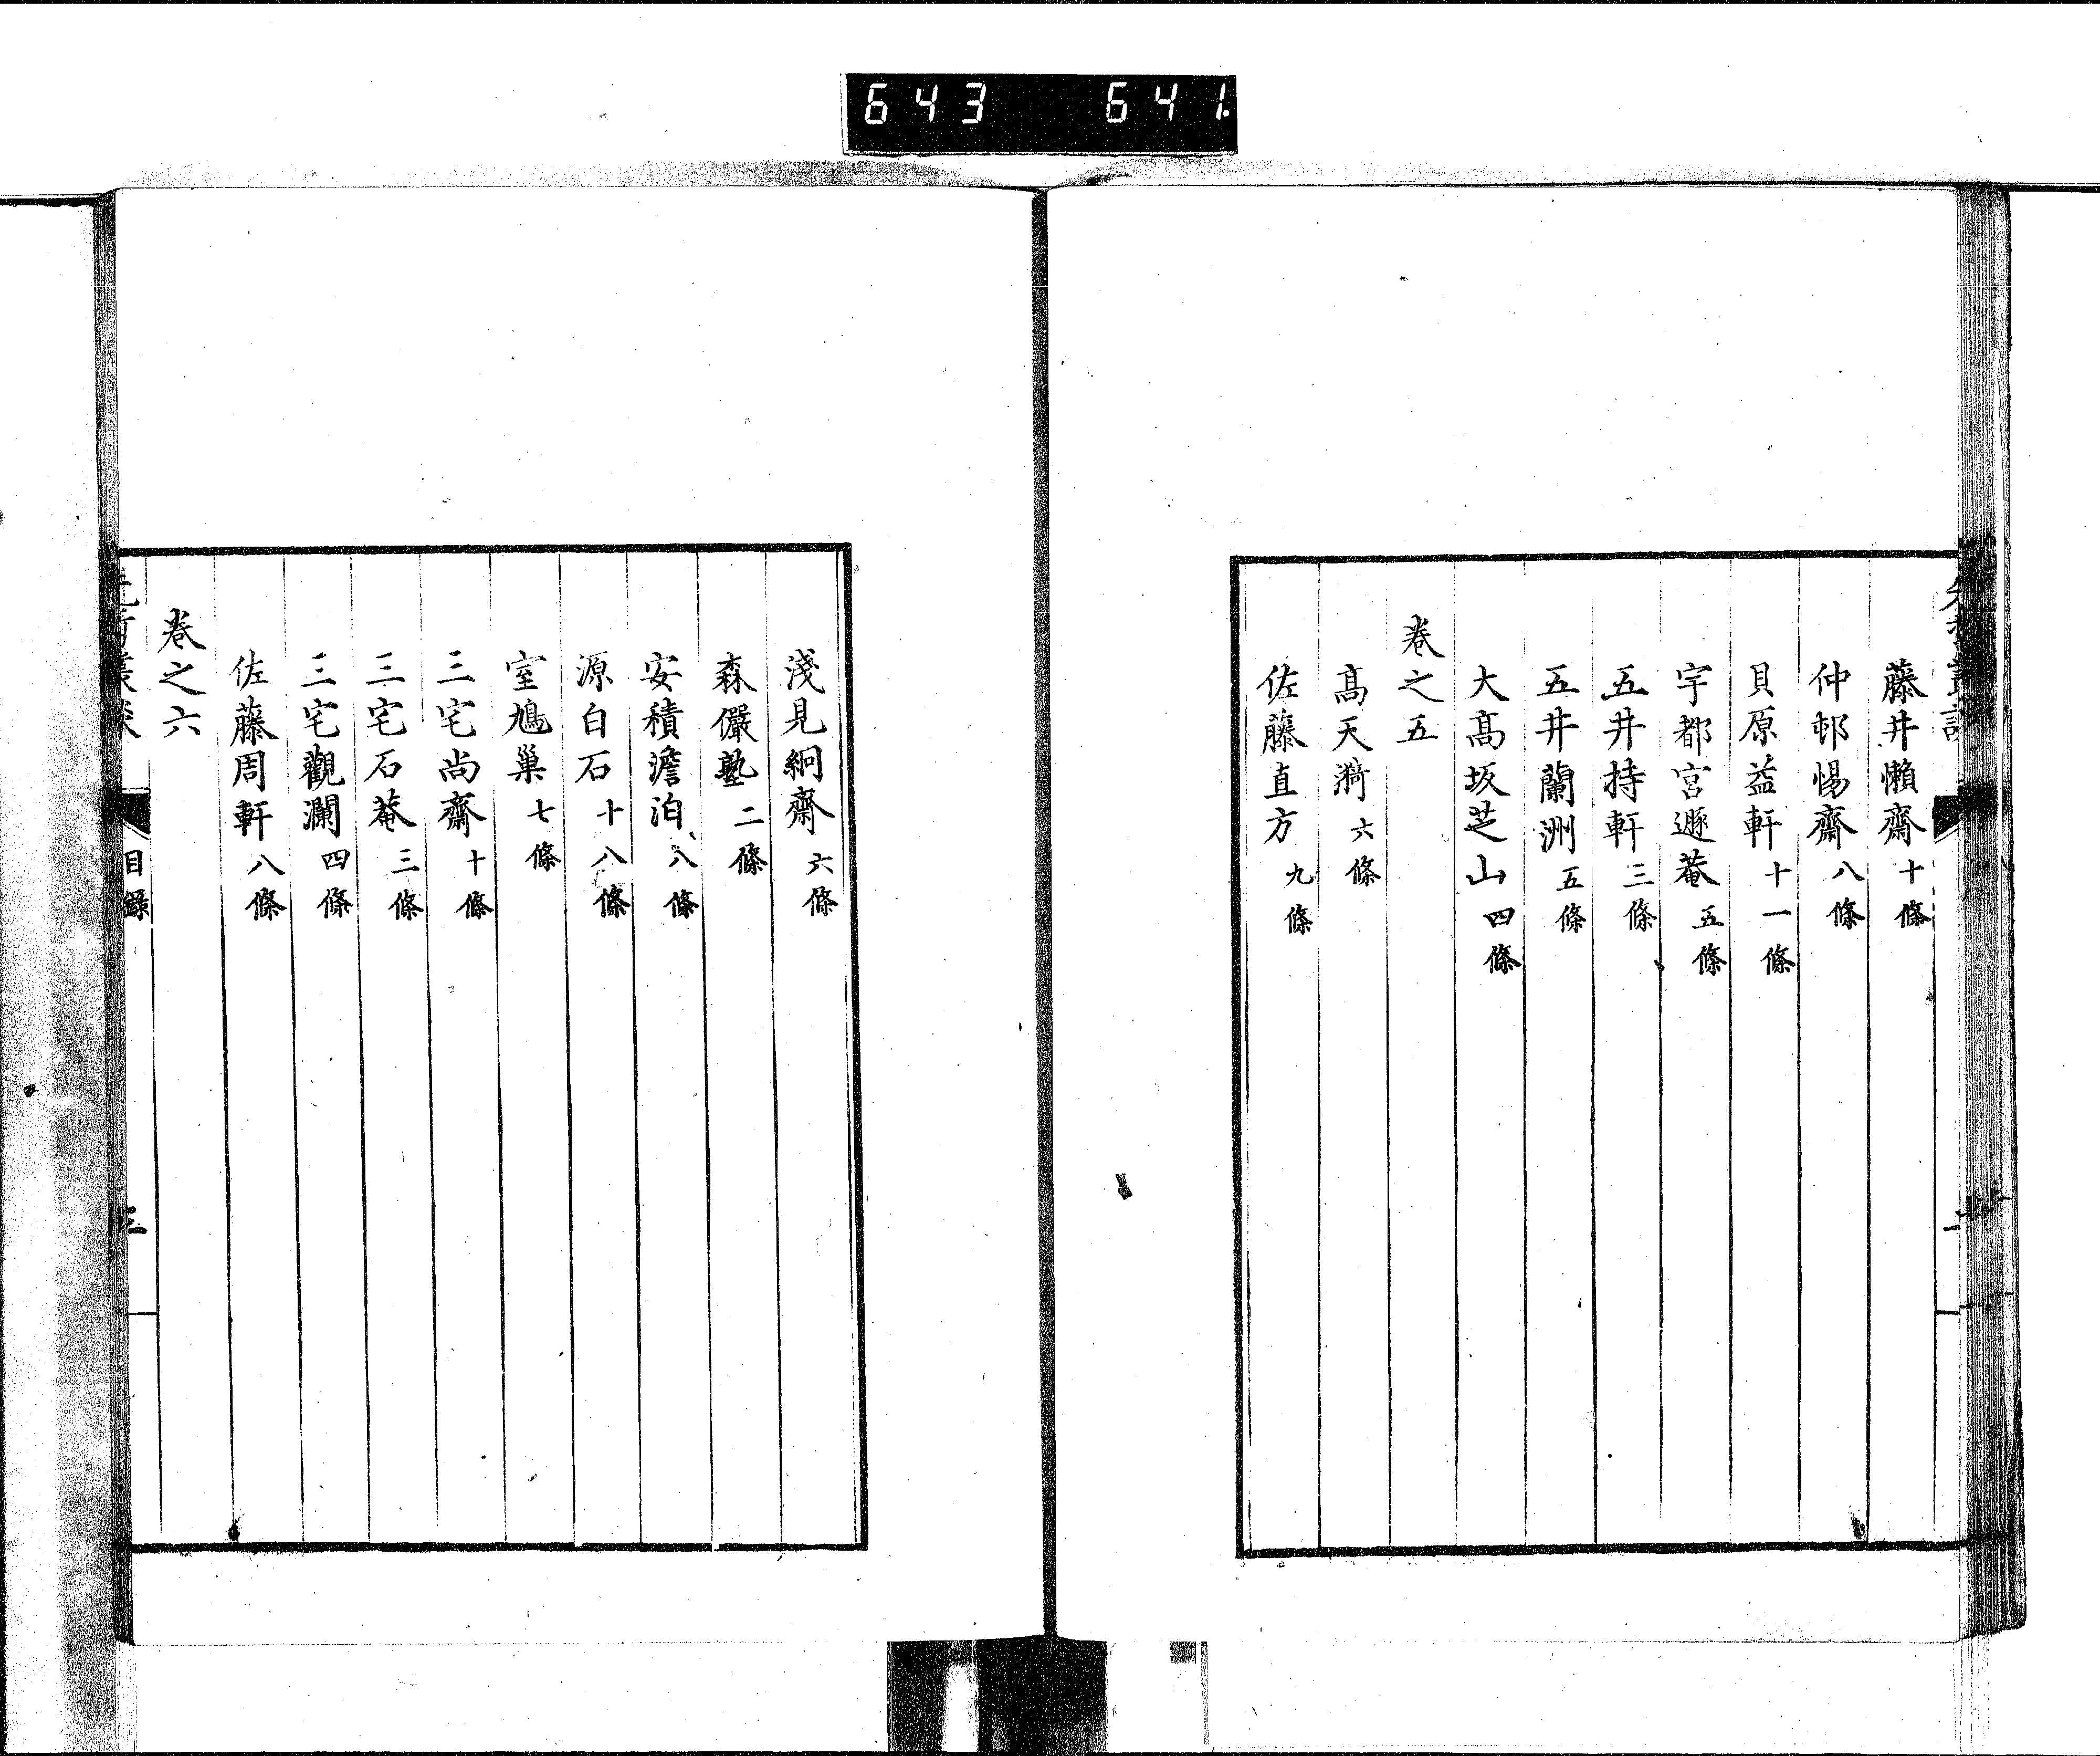 643 641.
藤井懶齋 十條
仲邨惕齋 八條
貝原益軒 十一條
宇都宮遯菴 五條
五井持軒 三條
五井蘭洲 五條
大髙坂芝山 四條
卷之五
髙天漪 六條
佐藤直方 九條
淺見絅齋 六條
森儼塾 二條
安積澹泊 八條
源白石 十八條
室鳩巢 七條
三宅尚齋 十條
三宅石菴 三條
三宅觀瀾 四條
佐藤周軒 八條
卷之六
目錄